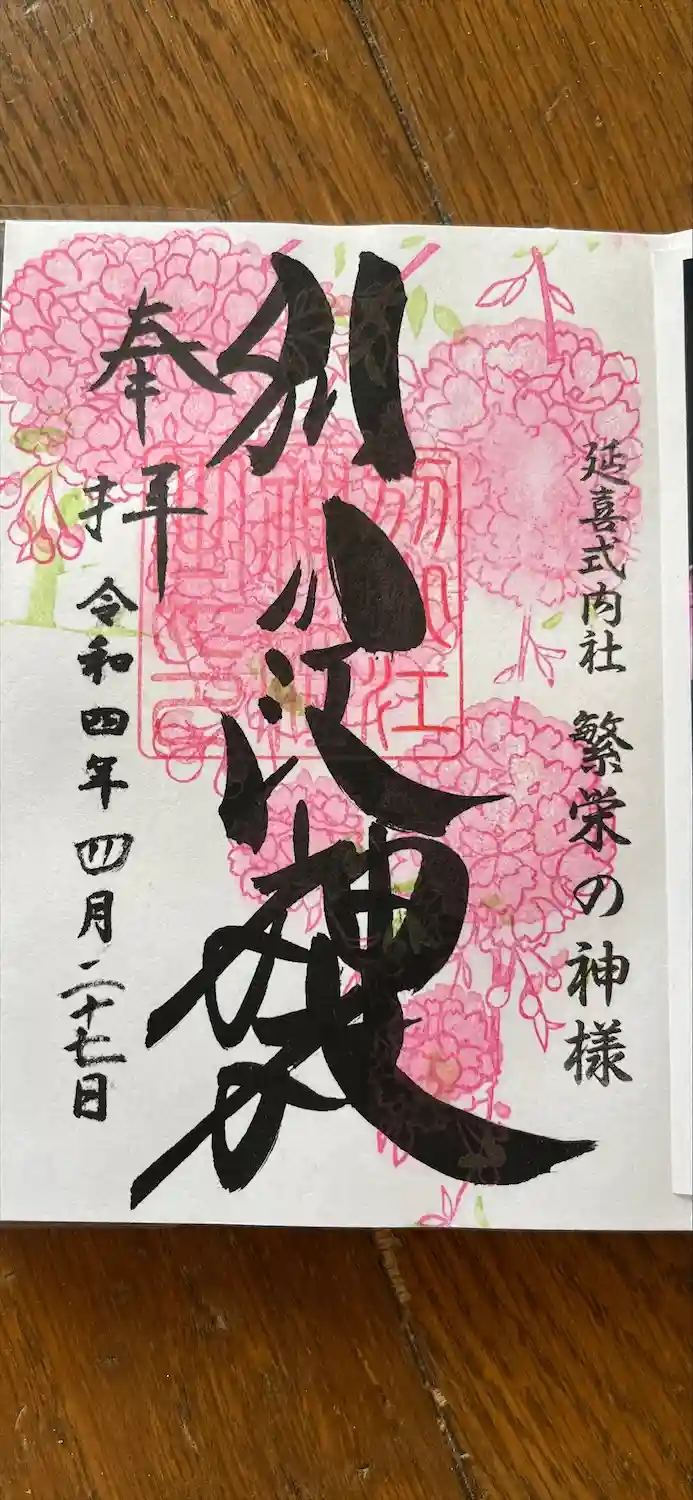 延喜式内社 繁栄の神様
別小江神社
奉拝
令和四年四月二十七日